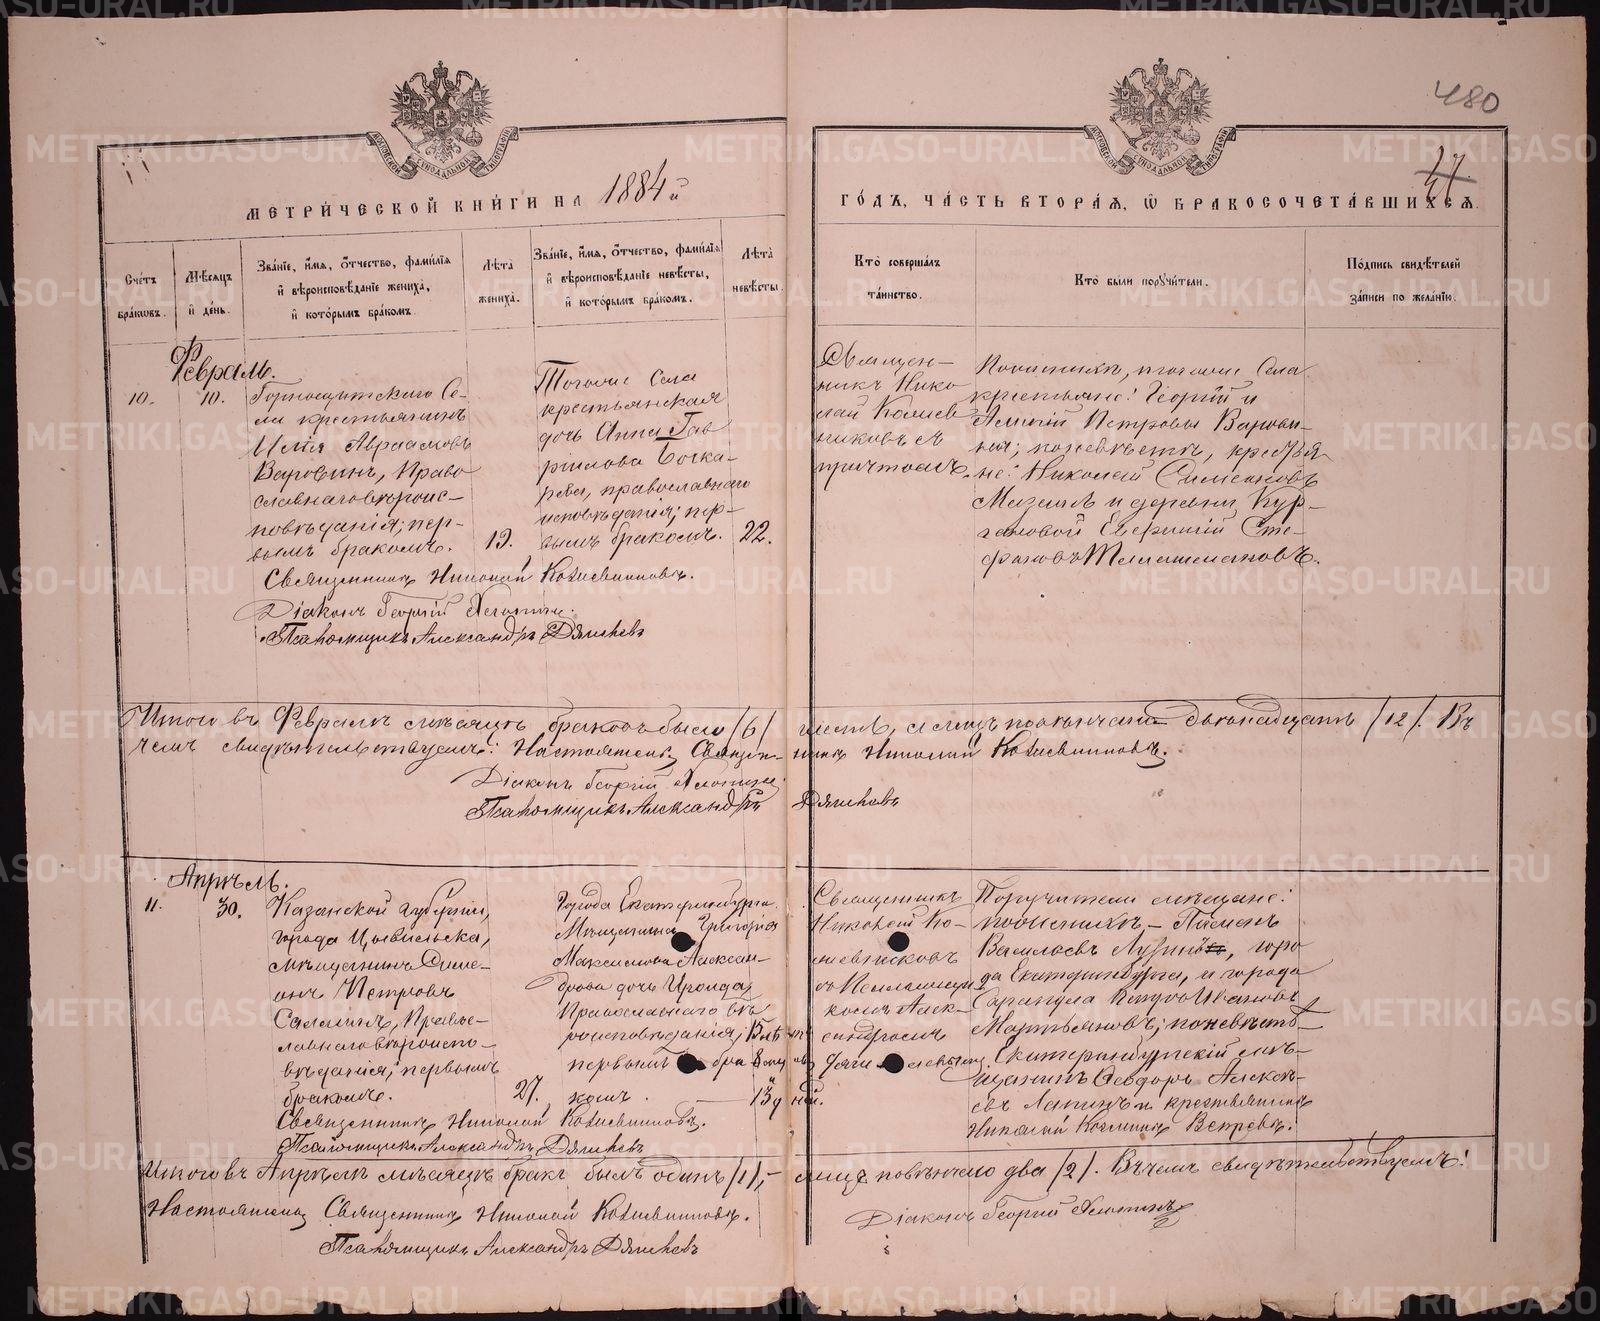 480
МЕТРИЧЕСКОЙ КНИГИ НА 1884й
ГОДЪ, ЧАСТЬ ВТОРАЯ, Ѡ БРАКОСОЧЕТАВШИХСЯ.
Счетъ браковъ.
Мѣсяцъ и день.
Званіе, имя, отчество, фамилія
и вѣроисповѣданіе жениха,
и которымъ бракомъ.
Лѣта жениха.
Званіе, имя, отчество, фамилія
и вѣроисповѣданіе невѣсты,
и которымъ бракомъ.
Лѣта невѣсты.
Кто совершалъ таинство.
Кто были поручители.
Подпись свидѣтелей записи по желанію.
Февраль.
10.
10.
Горнощитскаго Се-
ла крестьянинъ
Илія Авраамовъ
Варовинъ, Право
славнаго вѣроис-
повѣданія; пер-
вымъ бракомъ.
19.
Тогоже Села
крестьянская
дочь Анна Гав
рілова Бочка-
рева, православнаго
исповѣданія; пер-
вымъ бракомъ.
22.
Священ-
никъ Нико
лай Кожев
никовъ съ
причтомъ.
тогоже Села
крестьяне: Георгій и
Петровы Варови-
ны; по невѣстѣ, крестья
не: Николай Симеоновъ
и деревни Кур-
гановой Евфимій Сте-
фановъ
Священникъ Николай Кожевниковъ.
Діаконъ Георгій Хлопинъ.
Псаломщикъ Александръ Дягилевъ
Итого въ Февралѣ мѣсяцѣ браковъ было /6/ шесть, а лицъ повѣнчано двѣнадцать /12/. Въ
чемъ свидѣтельствуемъ: Настоятель, Священ- никъ Николай Кожевниковъ.
Діаконъ Георгій Хлопинъ.
Псаломщикъ Александръ Дягилевъ
Апрѣль.
11.
30.
Казанской Губерніи,
города Цывильска,
мѣщанинъ Симе-
онъ Петровъ
Правос-
лавнаго вѣроиспо-
вѣданія; первымъ
бракомъ.
27.
Города Екатеринбурга
Мѣщанина Григорія
Максимова Алексан-
дрова дочь Ироида,
Православнаго вѣ
роисповѣданія;
первымъ бра
комъ.
13 дней.
Священникъ
Николай Ко-
жевниковъ
съ Псаломщи
комъ Алек-
сандромъ
Поручители мѣщане:
по женихѣ, – Пименъ
Васильевъ горо
да Екатеринбурга, и города
Сарапула Ивановъ
Мартьяновъ; по невѣстѣ
Екатеринбургскій мѣ-
щанинъ Ѳеодоръ Алексѣ-
евъ Лапинъ и крестьянинъ
Николай
Священникъ Николай Кожевниковъ.
Псаломщикъ Александръ Дягилевъ
Итого въ Апрѣлѣ мѣсяцѣ бракъ былъ одинъ /1/, – лицъ повѣнчано два /2/. Въ чемъ свидѣтельствуемъ:
Настоятель, Священникъ Николай Кожевниковъ.
Діаконъ Георгій Хлопинъ
Псаломщикъ Александръ Дягилевъ
METRIKI.GASO-URAL.RU